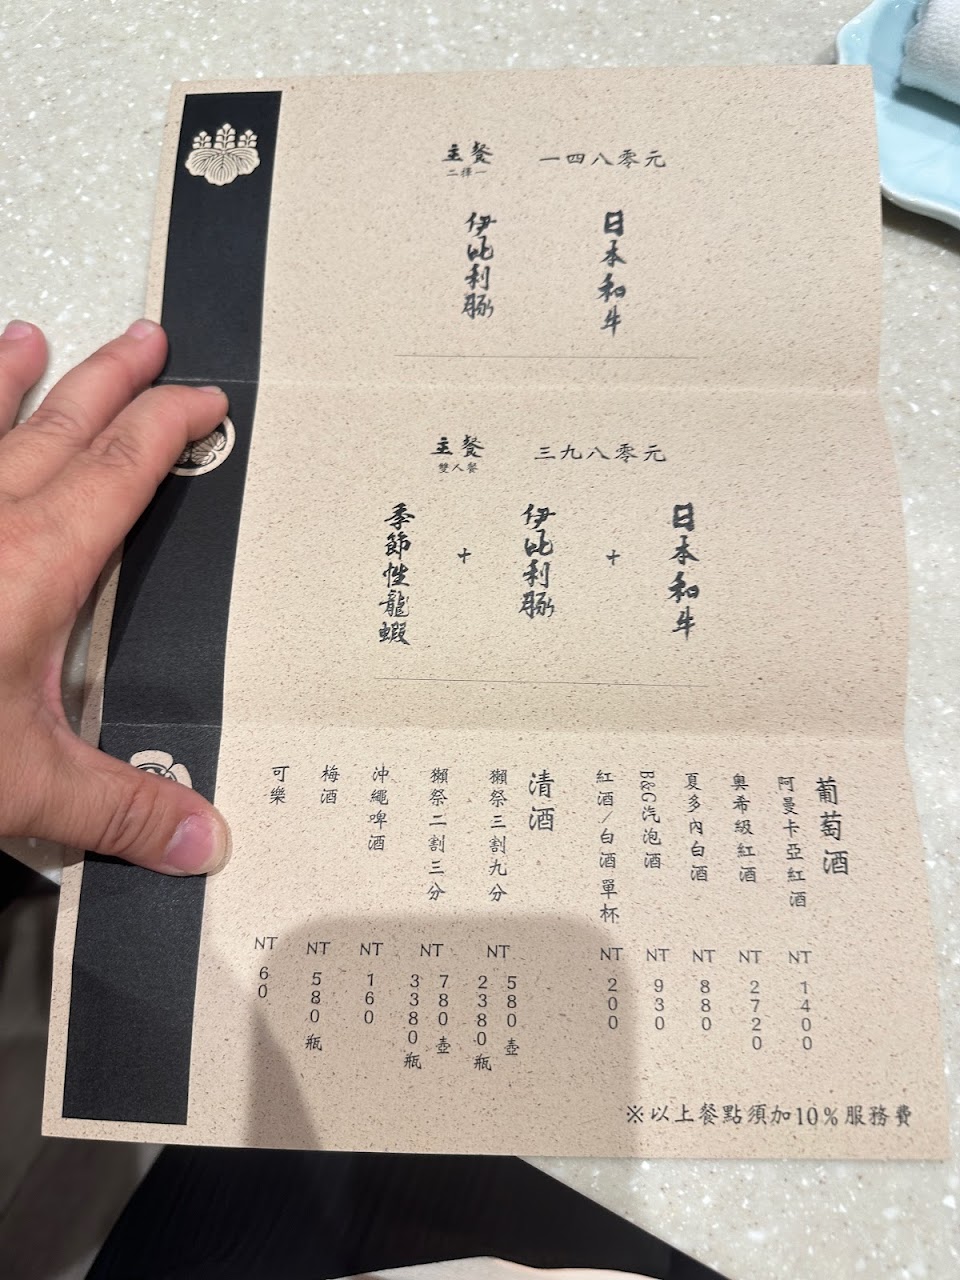 主餐 一四八零元
二擇一
日本和牛
伊比利豚
主餐 三九八零元
雙人餐
日本和牛
+
伊比利豚
+
季節性龍蝦
葡萄酒
阿曼卡亞紅酒 NT 1400
奧希級紅酒 NT 2720
夏多內白酒 NT 880
B&G汽泡酒 NT 930
紅酒/白酒 單杯 NT 200
清酒
獺祭三割九分 NT 580壺 2380瓶
獺祭二割三分 NT 780壺 3380瓶
沖繩啤酒 NT 160
梅酒 NT 580瓶
可樂 NT 60
※以上餐點須加10%服務費